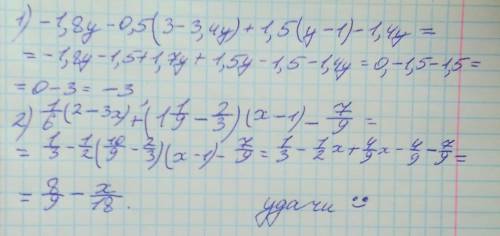 1) -1,8y - 0,5(3 - 3,4y) + 1,5(y - 1) - 1,4y =
= -1,8y - 1,5 + 1,7y + 1,5y - 1,5 - 1,4y = 0, -1,5 - 1,5 =
= 0 - 3 = -3
2) 1/6 (2 - 3x) + (1 1/9 - 2/3) (x - 1) - 7/9 =
= 1/3 - 1/2 (10/9 - 2/3) (x - 1) - 7/9 = 1/3 - 1/2 x + 4/9 x - 4/9 - 7/9 =
= 8/9 - x/18. удачи